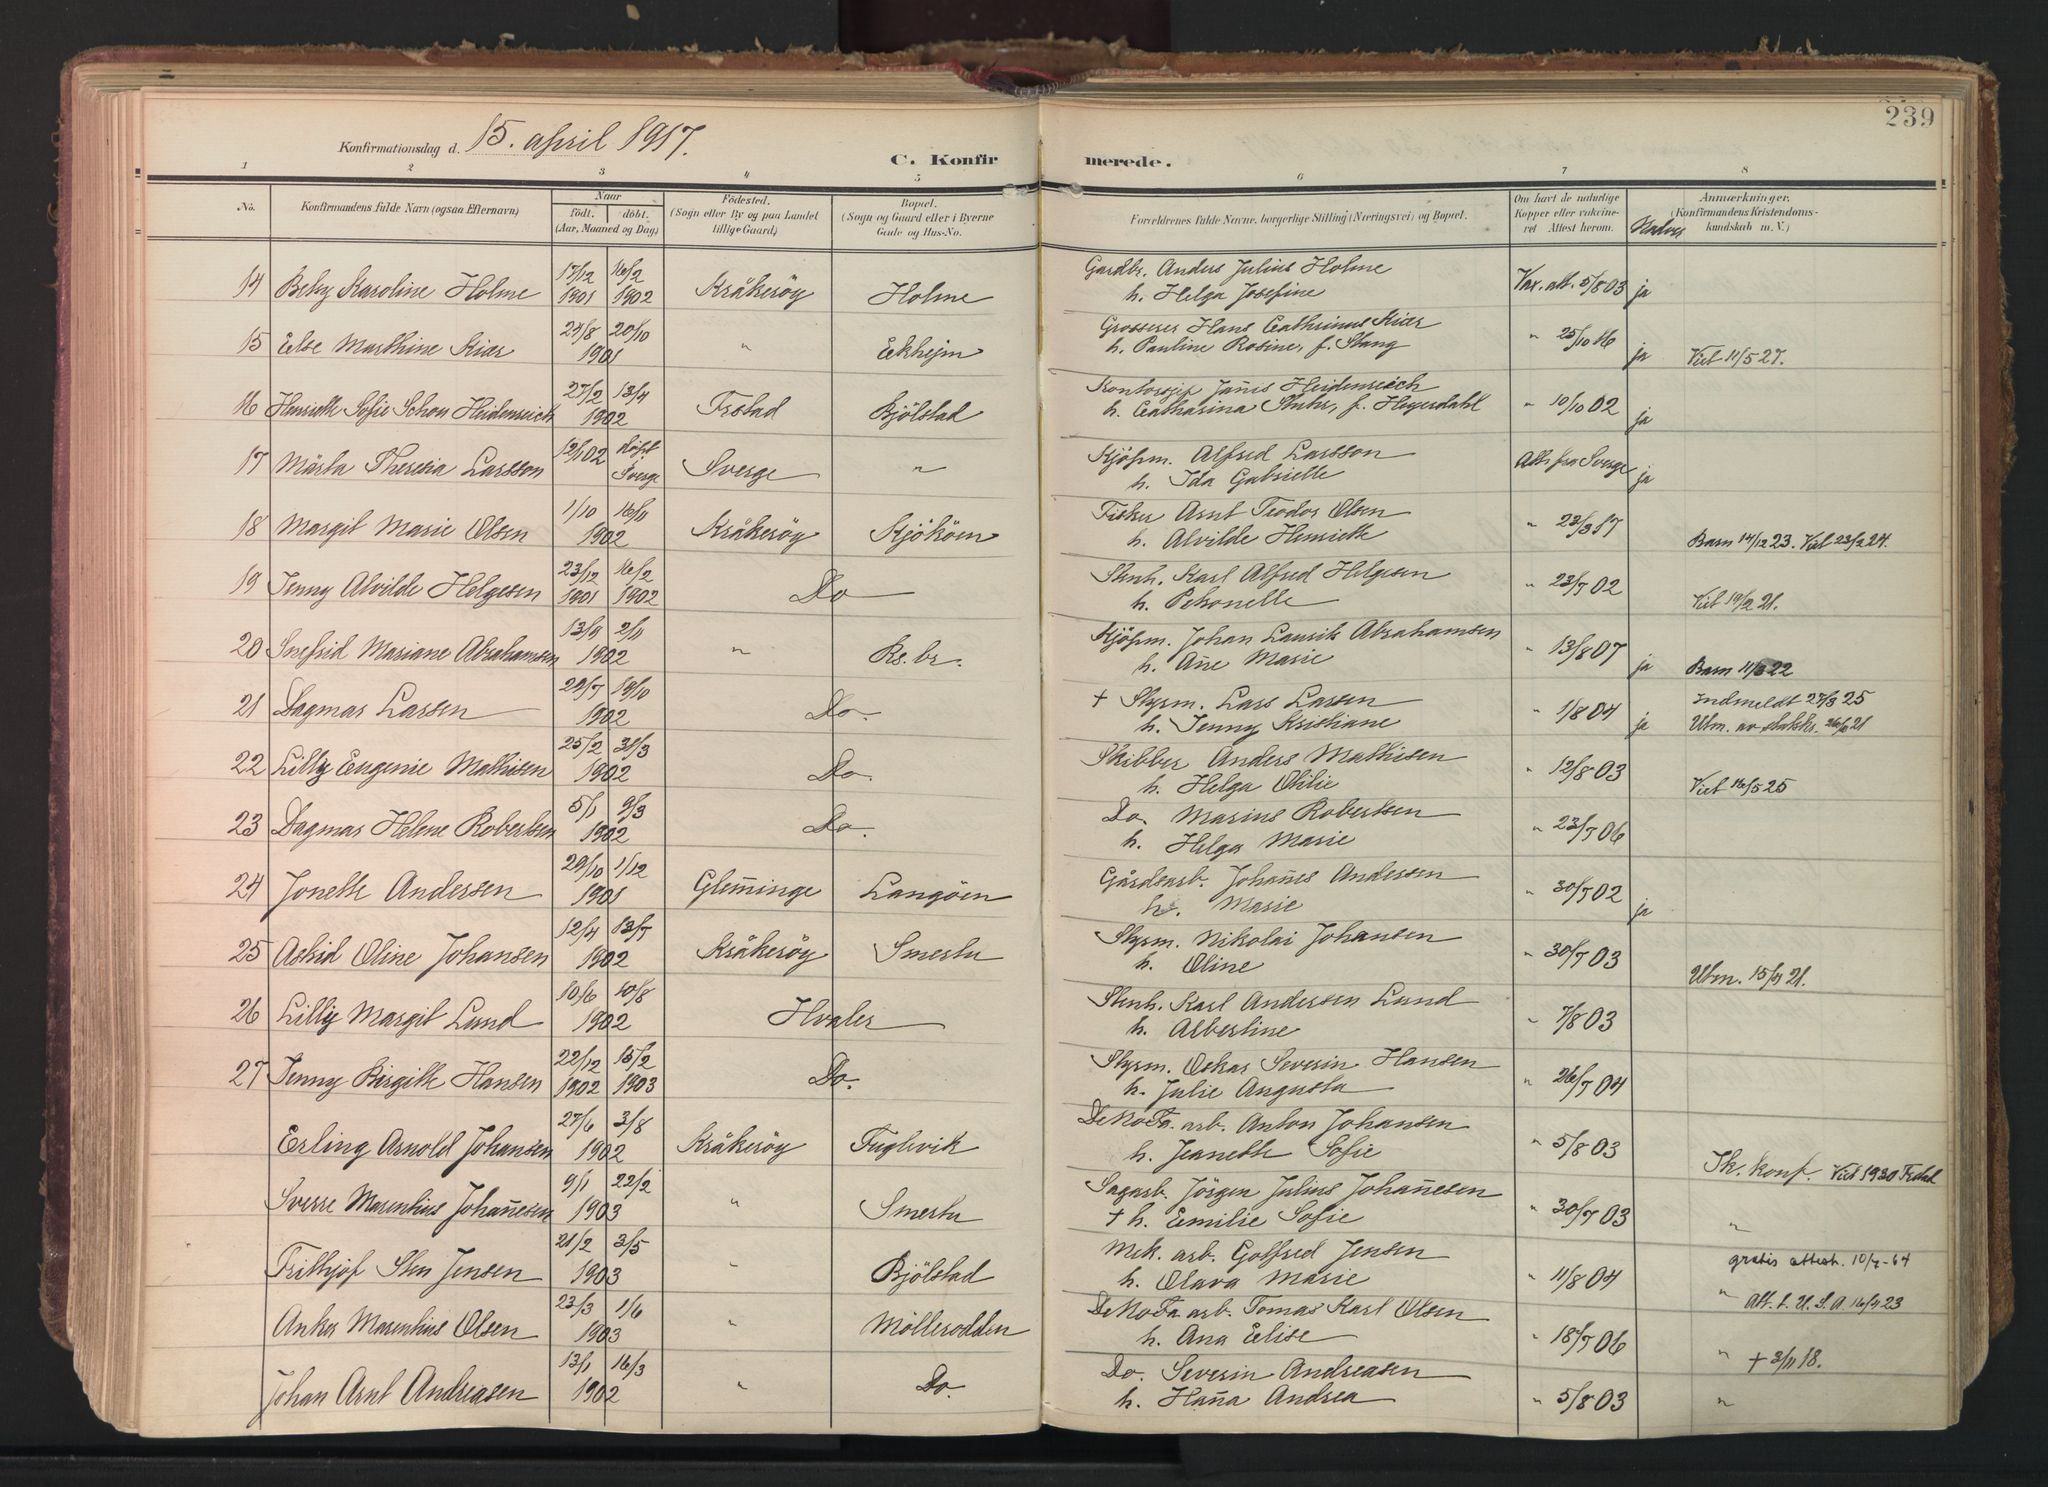 239
Konfirmationsdag d. 15. april 1917.
C. Konfirmerede.
1 2 3 4 5 6 7 8
No. Konfirmandens fulde Navn (ogsaa Efternavn) Naar født. døbt. (Aar, Maaned og Dag) Fødested. (Sogn eller By og paa Landet tillige Gaard) Bopæl. (Sogn og Gaard eller i Byerne Gade og Hus-No. Forældrenes fulde Navne, borgerlige Stilling (Næringsvei) og Bopæl. Om havt de naturlige Kopper eller vaccineret Attest herom. Anmærkninger. (Konfirmandens Kristendomskundskab m. V.)
14 Betzy Karoline Holme 17/12 1901 16/2 1902 Kråkerøy Holme Gardbr. Anders Julius Holme
h. Helga Josefine Vax. att. 5/8 03 ja
15 Else Marthine Kiær 24/8 20/10 1901 " Ekhejm Grosserer Hans Cathrinus Kiær
h. Pauline Rosine, f. Stang " 25/10 16 ja Viet 11/5 27.
16 Henriette Sofie Schou Heidenreich 27/2 13/4 1902 Trøstad Bjölstad Jañis Heidenreich
h. Catharina Stuhr, f. Heyerdahl " 10/10 02 ja
17 Märta Theresia Larsson 12/1 02 döpt Sverge Sverge " Kjöpm. Alfred Larsson
h. Ida Gabrielle Att. fra Sverge ja
18 Margit Marie Olsen 1/10 16/11 1902 Kråkeröy Kjököen Fisker Arnt Teodor Olsen
h. Alvilde Henriette " 22/3 17 Barn 14/12 23. Viet 23/2 24.
19 Jenny Alvilde Helgesen 23/12 1901 16/2 1902 Do Stenh. Karl Alfred Helgesen
h. Petronelle " 23/7 02 Viet 19/2 21.
20 Snefrid Mariane Abrahamsen 13/9 2/11 1902 " Rs. br. Kjöpm. Johan Laurits Abrahamsen
h. Añe Marie " 13/8 07 ja Barn 22
21 Dagmar Larsen 29/7 19/10 1902 Do. + Styrm. Lars Larsen
h. Jenny Kristiane " 1/8 04 ja Indmeldt 27/3 25
Utm. av statskr. 21
22 Lilly Eugenie Mathisen 25/2 31/3 1902 Do. Skibber Anders Mathisen
h. Helga Otilie " 12/8 03 Viet 16/5 25
23 Dagmar Helene Robertsen 5/1 9/3 1902 Do. Do. Marius Robertsen
h. Helga Marie " 23/7 06
24 Jonette Andersen 29/10 1/12 1901 Glem̄inge Langöen Gårdsarb. Johañes Andersen
h. Marie " 30/7 02 ja
25 Astrid Oline Johansen 12/4 13/7 1902 Kråkeröy Smertu Styrm. Nikolai Johansen
h. Oline " 30/7 03 Utm. 15/11 21.
26 Lilly Margit Lund 10/6 10/8 1902 Hvaler Stenh. Karl Andersen Lund
h. Albertine " 7/8 03
27 Jenny Birgitte Hansen 22/12 1902 15/2 1903 Do. Styrm. Oskar Severin Hansen
h. Julie Augusta " 26/7 04
Erling Arnold Johansen 27/6 3/8 1902 Kråkeröy Fuglevik DeNoFa. arb. Anton Johansen
h. Jeanette Sofie " 5/8 03 Ik. konf. Viet 1930 Frstad
Sverre Marentius Johañesen 9/1 22/2 1903 " Smertu Sagarb. Jörgen Julius Johañesen
+ h. Emilie Sofie " 30/7 03 "
Frithjof Sten Jensen 21/2 3/5 1903 " Bjölstad Mek. arb. Golfred Jensen
h. Olava Marie " 11/8 04 gratis attest. 10/7-64
" Att. t. U. S. A 16/4 23
Anker Marentius Olsen 23/3 1/6 1903 " Möllerodden DeNoFa arb. Tomas Karl Olsen
h. Ana Elise " 18/7 06 " + 3/11 18.
Johan Arnt Andreasen 13/1 16/3 1902 " Do. Do. Severin Andreasen
h. Hañna Andrea " 5/8 03 "